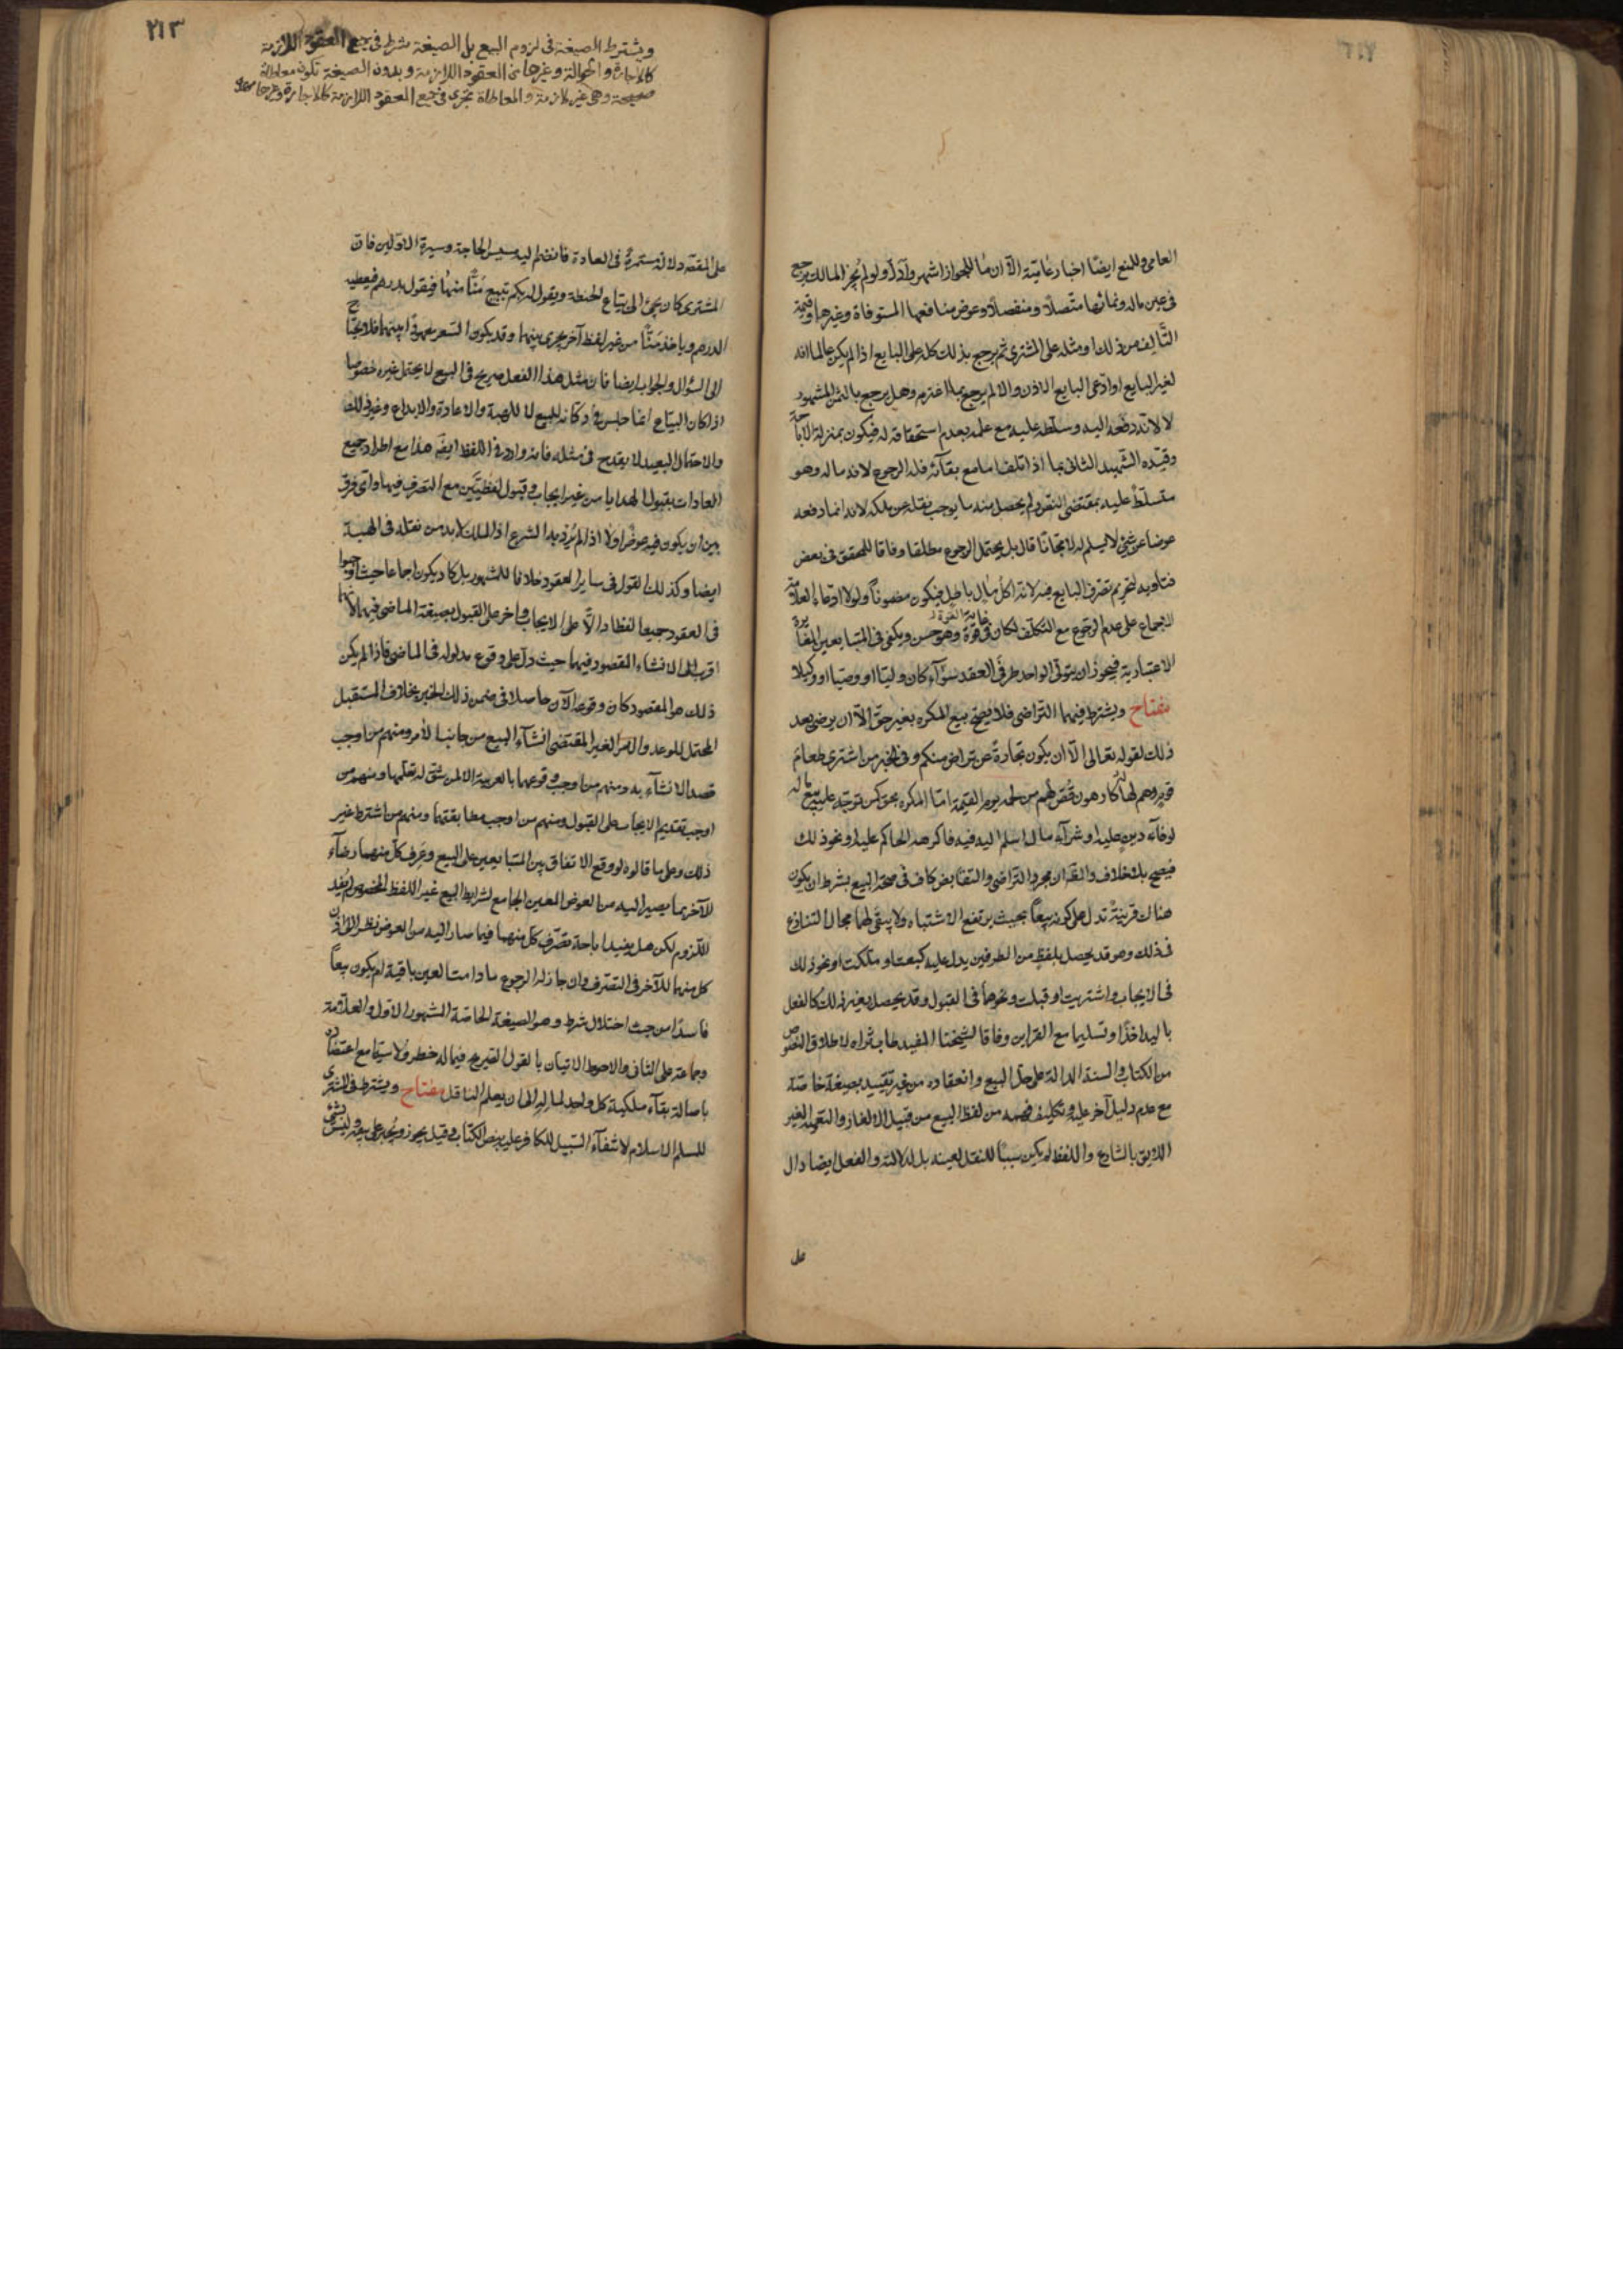 العامى وللمنع ايضا اخبار عاميّة الّا ان ما للجواز اشهر وأدلّ ولو لم يُجز المالك يرجع
فى عين ماله ونمائها متّصلاً ومنفصلاً وعوض منافعها المستوفاة وغيرها وقيمة
التَّالف من ذلك او مثله على المشترى ثم يرجع بذلك كله على البايع اذا لم يكن عالما انه
لغير البايع او ادّعى البايع الاذن والا لم يرجع بما اغترم وهل يرجع بالثمن المشهور
لا لانه دفعه اليه وسلّطه عليه مع علمه بعدم استحقاقه له فيكون بمنزلة الاباحة
وقيّده الشّهيد الثانى بما اذا تلف اما مع بقآئه فله الرجوع لانه ماله وهو
متسلّط عليه بمقتضى النصّ ولم يحصل منه ما يوجب نقله عن ملكه لانه انما دفعه
عوضا عن شئ لا ليسلم له الا مجّانا قال بل يحتمل الرجوع مطلقا وفاقا للمحقق فى بعض
فتاويه لتحريم تصرف البايع فيه لانه اكل مال باطل فيكون مضمونًا ولولا ادعاء العلّامة
الاجماع على عدم الرّجوع مع التّلف لكان فى غاية القوة وهو حسن ويكفى فى المتبايعين المغايرة
الاعتبارية فيجوز ان يتولّى الواحد طرفى العقد سوآء كان وليّا او وصيّا او وكيلا
مفتاح ويشترط فيهما التّراضى فلا يصحّ بيع المكره بغير حقّ الّا ان يرضى بعد
ذلك لقوله تعالى الّا ان يكون تجارةً عن تراض منكم وفى الخبر من اشترى طعامَ
قوم وهم له كارهون قُصّ لهم من لحمه يوم القيمة امّا المكره بحق كمن توجّه عليه بيع ماله
لوفآء دين عليه او شرآء مال اسلم اليه فيه فاكرهه الحاكم عليه او نحو ذلك
فيصح بلا خلاف والظّ ان مجرد التّراضى والتقابض كاف فى صحة البيع بشرط ان يكون
هناك قرينةٌ تدل على كونه بيعاً بحيث يرتفع الاشتباه ولا يبقى لهما مجال التنازع
فى ذلك وهو قد يحصل بلفظٍ من الطرفين يدل عليه كبعت او ملّكت او نحو ذلك
فى الايجاب واشتريت او قبلت ونحوها فى القبول وقد يحصل بغير ذلك كالفعل
باليد اخذًا وتسليما مع القراين وفاقا لشيخنا المفيد طاب ثراه لاطلاق النصوص
من الكتاب والسنة الدالة على حلّ البيع وانعقاده من غير تقييد بصيغة خاصّة
مع عدم دليل آخر عليه وتكليف فهمه من لفظ البيع من قبيل الالغاز والتعمية الغير
اللايق بالشارع واللفظ لم يكن سببًا للنقل لعينه بل لدلالته والفعل ايضا دال
على
٢١٣
ويشترط الصيغة فى لزوم البيع بل الصيغة شرط فى جميع العقود اللازمة
كالاجارة والحوالة وغيرها من العقود اللازمة وبدون الصيغة تكون معاطاة
صحيحة وهى غير لازمة والمعاطاة تجرى فى جميع العقود اللازمة كالاجارة وغيرها
على المقصّد دلالة مستمرةً فى العادة فانضم اليه مسيس الحاجة وسيرة الاوّلين فان
المشترى كان يجئ الى بيّاع الحنطة ويقول له بكم تبيع مَنًّا منها فيقول بدرهم فيعطيه
الدرهم وياخذ مَنًّا من غير لفظ آخر يجرى بينهما وقد يكون السّعر معهودًا بينهما فلا يحتاج
الى السّؤال والجواب ايضا فان مثل هذا الفعل صريح فى البيع لا يحتمل غيره خصوصا
اذا كان البيّاع انما جلس فى دكّانه للبيع لا للهبة والاعادة والايداع وغير ذلك
والاحتمال البعيد لا يقدح فى مثله فانه وارد فى اللفظ ايضًا هذا مع اطراد جميع
العادات بقبول الهدايا من غير ايجاب وقبول لفظيّين مع التصرف فيها واىّ فرق
بين ان يكون فيه عوض او لا اذا لم يُرد به الشرع اذ الملك لا بد من نقله فى الهبة
ايضا وكذلك القول فى ساير العقود خلافا للمشهور بل كاد يكون اجماعا حيث اوجبوا
فى العقود جميعا لفظا دالًّا على الايجاب وآخر على القبول بصيغة الماضى فيهما لأنها
اقرب الى الانشاء المقصود فيهما حيث دلّ على وقوع مدلوله فى الماضى فاذا لم يكن
ذلك هو المقصود كان وقوعه الآن حاصلا فى ضمن ذلك الخبر بخلاف المستقبل
المحتمل للوعد والامر الغير المقتضى انشآء البيع من جانب الآمر ومنهم من اوجب
قصد الانشآء به ومنهم من اوجب وقوعهما بالعربية الا لمن شقّ له تعلّمها ومنهم من
اوجب تقديم الايجاب على القبول ومنهم من اوجب مطابقتهما ومنهم من اشترط غير
ذلك وعلى ما قالوه لو وقع الاتفاق بين المتبايعين على البيع وعَرف كلّ منهما رضآء
الآخر بما يصير اليه من العوض المعين الجامع لشرايط البيع غير اللفظ المخصوص لم يُفد
اللّزوم لكن هل يفيد اباحة تصرّف كل منهما فيما صار اليه من العوض نظرا الى اذن
كل منهما للآخر فى التصرف وان جاز له الرجوع ما دامت العين باقية ام يكون بيعاً
فاسدًا من حيث اختلال شرط وهو الصيغة الخاصّة المشهور الاول والعلّامة
وجماعة على الثانى والاحوط الاتيان بالقول الصّريح فيما له خطر ولا سيّما مع اعتضاده
باصالة بقآء ملكية كل واحد لماله الى ان يعلم الناقل مفتاح ويشترط فى المشترى
للمسلم الاسلام لانتفآء السّبيل للكافر عليه بنصّ الكتاب وقيل يجوز ويُجبر على بيعه